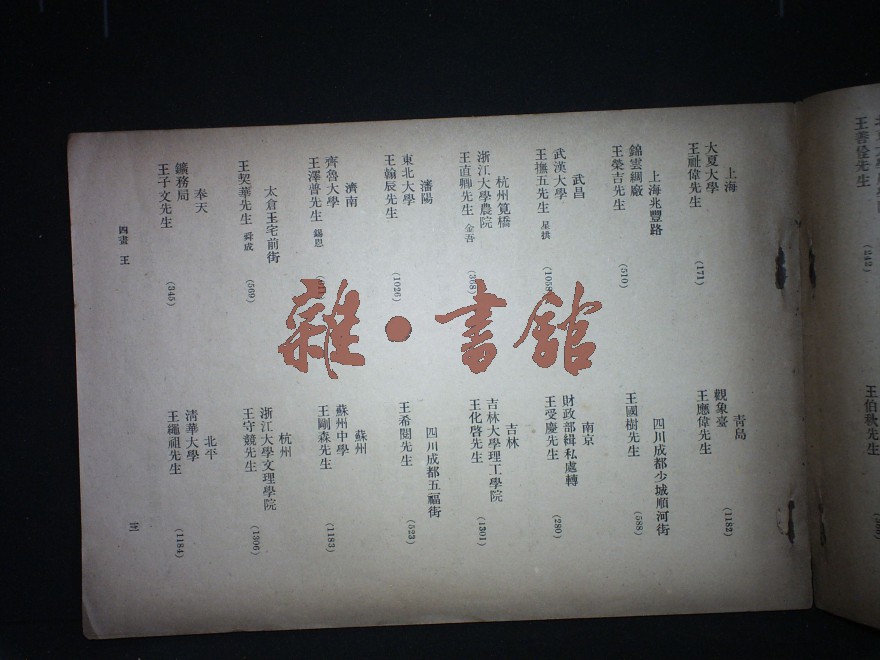 上海
大夏大學
王祉偉先生
(171)
上海兆豐路
錦雲綢廠
王榮吉先生
(510)
武昌
武漢大學
王撫五先生 星拱
杭州筧橋
浙江大學農院
王直聊先生 金吾
瀋陽
東北大學
王翰辰先生
(1026)
濟南
齊魯大學
王澤普先生 錫恩
太倉王宅前街
王契華先生 舜成
(569)
奉天
鑛務局
王子文先生
(345)
青島
觀象臺
王應偉先生
(1182)
四川成都少城順河街
王國樹先生
(588)
南京
財政部緝私處轉
王受慶先生
(280)
吉林
吉林大學理工學院
王化啓先生
(1301)
四川成都五福街
王希閎先生
(523)
蘇州
蘇州中學
王剛森先生
(1183)
杭州
浙江大學文理學院
王守競先生
(1306)
北平
清華大學
王繩祖先生
(1184)
四畫 王
王善佺先生
(242)
王伯秋先生
雜·書館